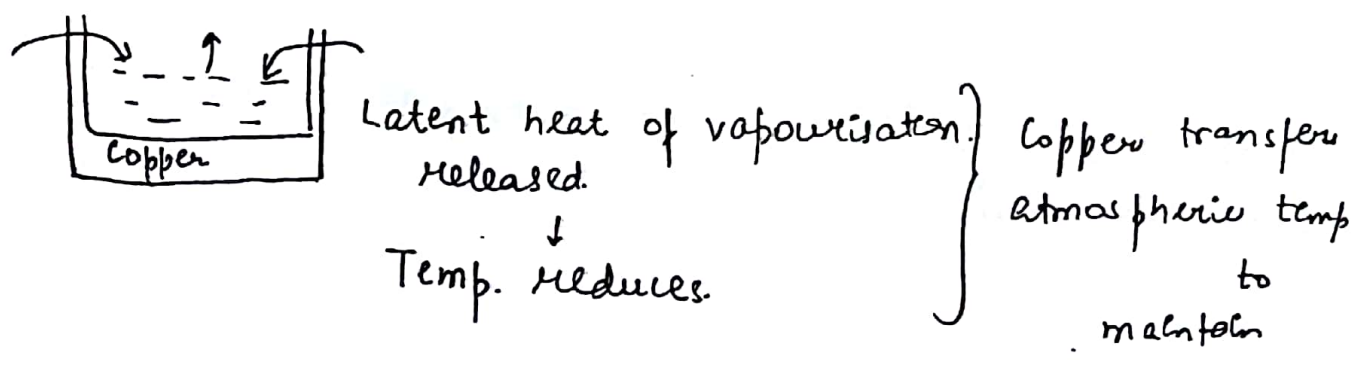 Copper
Latent heat of vapourisation.
released.
↓
Temp. reduces.
Copper transfers
atmospheric temp
to
maintain